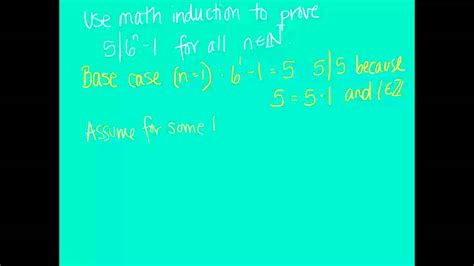 Use math induction to prove
5|6ⁿ-1 for all n∈ℕ.
Base case (n=1): 6¹-1=5 5|5 because
5=5·1 and 1∈ℤ
Assume for some